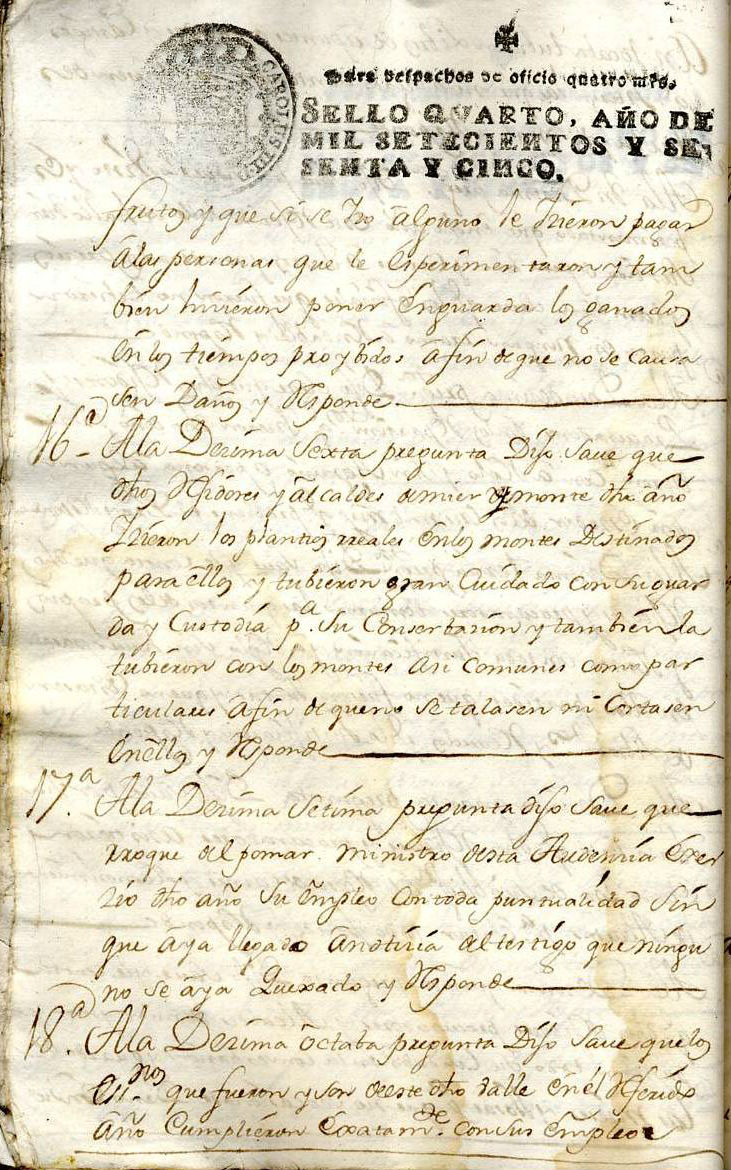 CAROLUS III
Para despachos de oficio quatro mrs.
SELLO QVARTO, AÑO DE
MIL SETECIENTOS Y SE-
SENTA Y CINCO.
frutos y que si se hzo alguno le hizieron pagar
a las personas que le esperimentaron y tam
bien hizieron poner en guarda los ganados
en los tiempos proybidos a fin de que no se causa
sen Daños y Responde
16.a A la Dezima Sexta pregunta Dijo Save que
dhos Rexidores y alcaldes de mier y monte dho año
hizieron los plantios rreales en los montes Destinados
para ellos y tubieron gran Cuidado con su guar
da y Custodia p.a Su Conserbazion y tambien la
tubieron con los montes asi comunes como par
ticulares a fin de que no se talasen ni Cortasen
en ellos y Responde
17.a A la Dezima Setima pregunta dijo Save que
rroque del pomar ministro desta Audenzia Exer
zio dho año Su Empleo con toda puntualidad Sin
que aya llegado a notizia del testigo que ningu
no se aya Quexado y Responde
18.a A la Dezima octaba pregunta Dijo Save que los
que fueron y son de este dho Valle en el Referido
año Cumplieron Exatam.te con sus Empleos